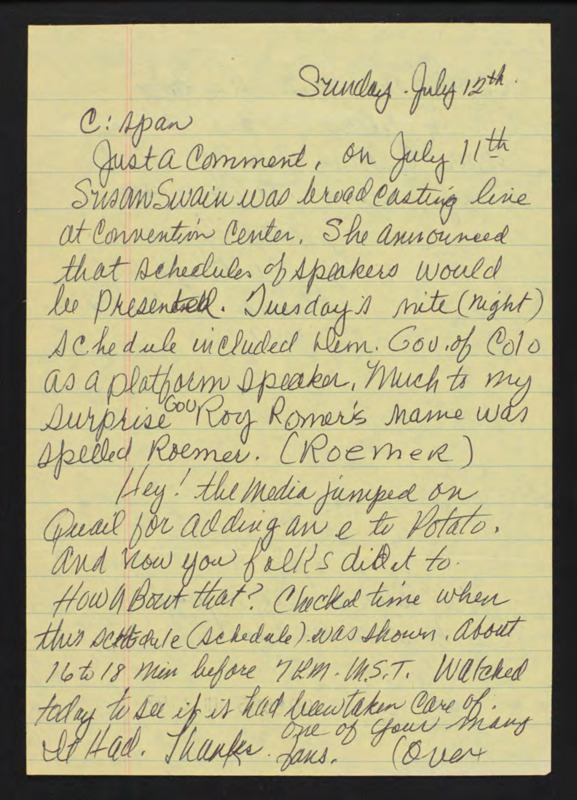 Sunday. July 12th.
C: span
Just a Comment, on July 11th
Susan Swain was broadcasting live
at Convention Center. She announced
that schedules of speakers would
be presented. Tuesday's nite (night)
schedule included Dem. Gov. of Colo
as a platform speaker. Much to my
surprise Gov Roy Romer's name was
spelled Roemer. (ROEMER)
Hey! the Media jumped on
Quail for adding an e to Potato.
And now you folks did it to.
How About that? Checked time when
this schedule (schedule) was shown. About
16 to 18 min before 7 P.M. M.S.T. Watched
today to see if it had been taken care of.
It Had. Thanks. one of your many
fans. (Over